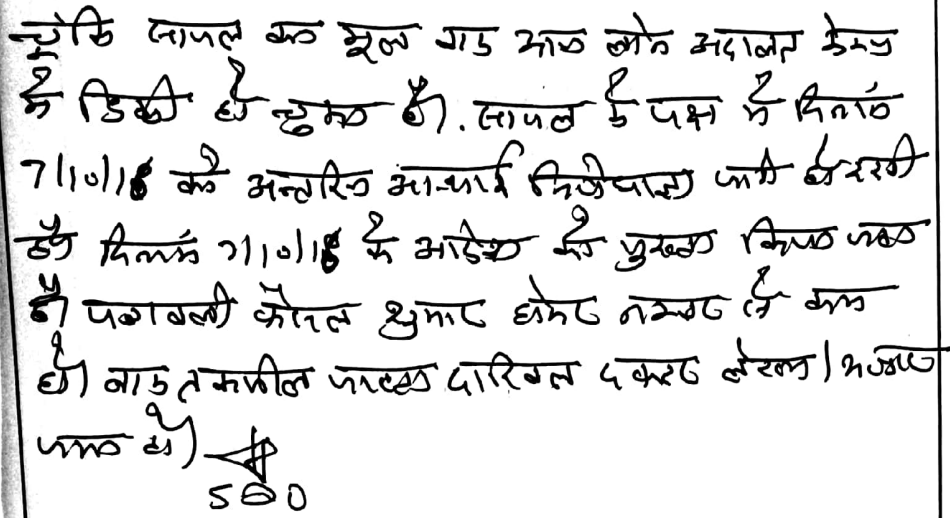 चूंकि सायल का मूल वाद आज लोक अदालत केम्प
में डिक्री हो चुका है। सायल के पक्ष में दिनांक
7/10/18 को अन्तरिम अस्थाई निषेधाज्ञा जारी हो रखी
है दिनांक 7/10/18 के आदेश को पुख्ता किया जाता
है। पत्रावली फैसल शुमार होकर नम्बर से कम
हो। बाद तकमील जाब्ता दाखिल दफ्तर
जावे।
SDO